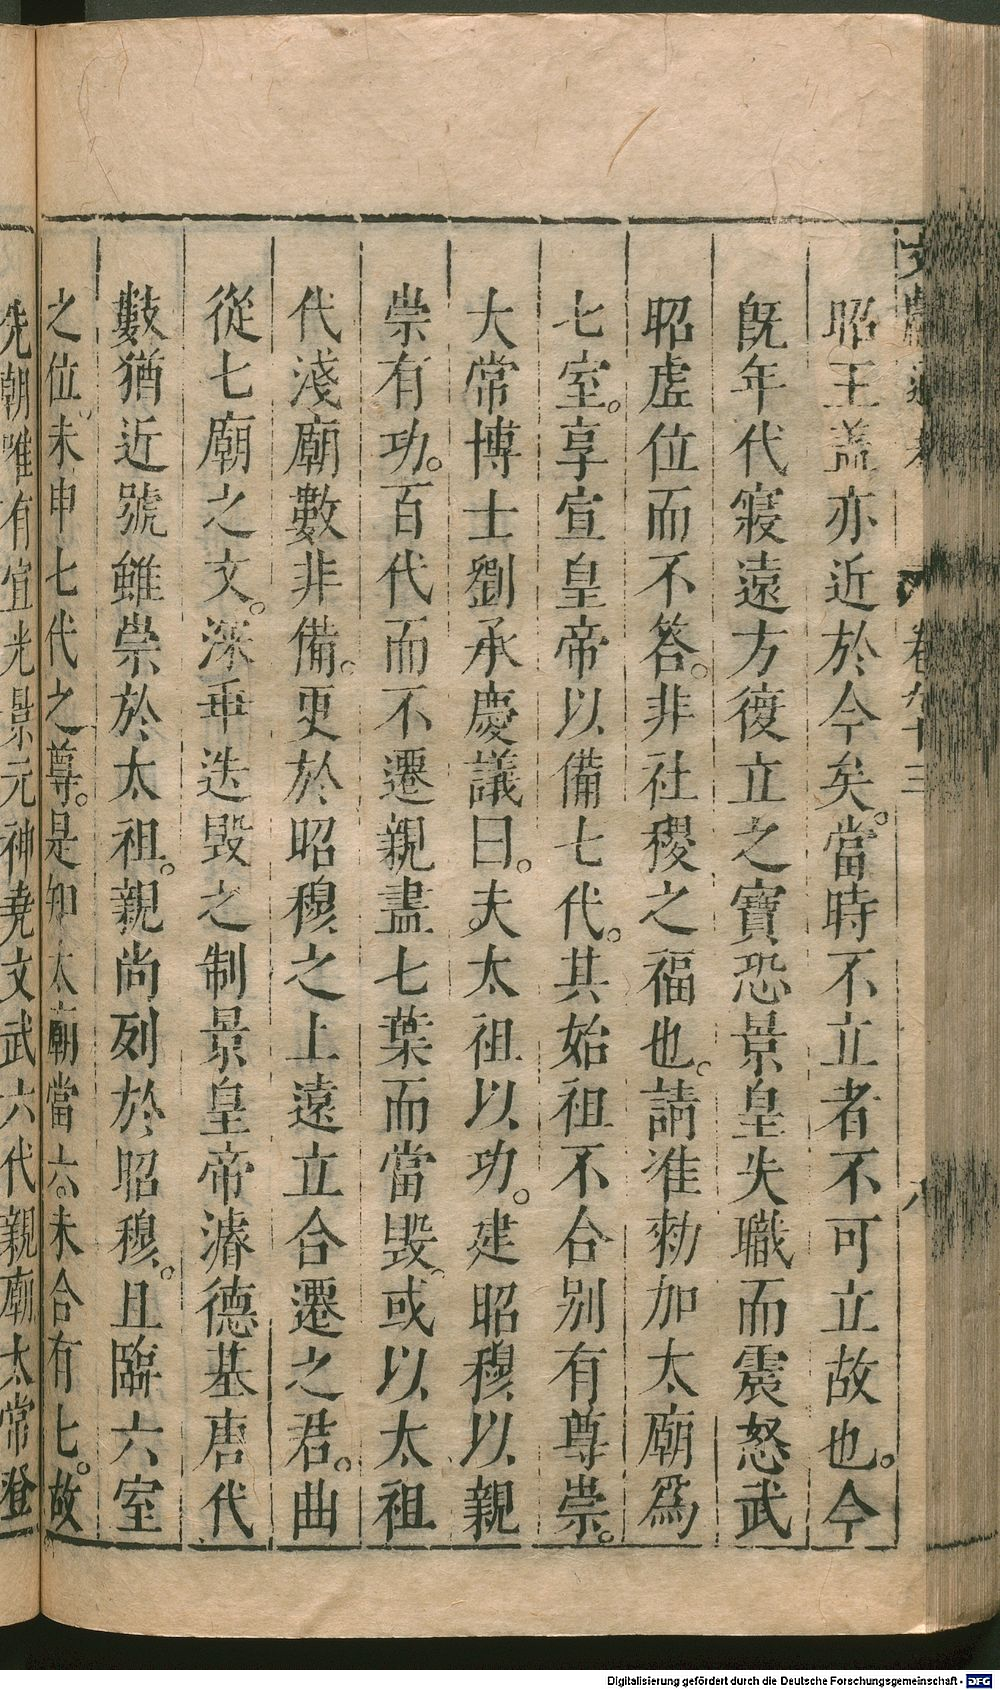 昭王蓋亦近於今矣。當時不立者不可立故也。今
既年代寖遠方復立之寶恐景皇失職而震怒武
昭虛位而不答。非社稷之福也。請准勑加太廟爲
七室。享宣皇帝以備七代。其始祖不合別有尊崇。
大常博士劉承慶議曰。夫太祖以功。建昭穆以親
崇有功。百代而不遷親盡七葉而當毀。或以太祖
代淺廟數非備。更於昭穆之上遠立合遷之君。曲
從七廟之文。深乖迭毀之制景皇帝濬德基唐代
數猶近號雖崇於太祖。親尚列於昭穆。且臨六室
之位。未申七代之尊。是知太廟當六。未合有七。故
先朝唯有宣光景元神堯文武六代親廟太常登
卷九十三
八
Digitalisierung gefördert durch die Deutsche Forschungsgemeinschaft - DFG